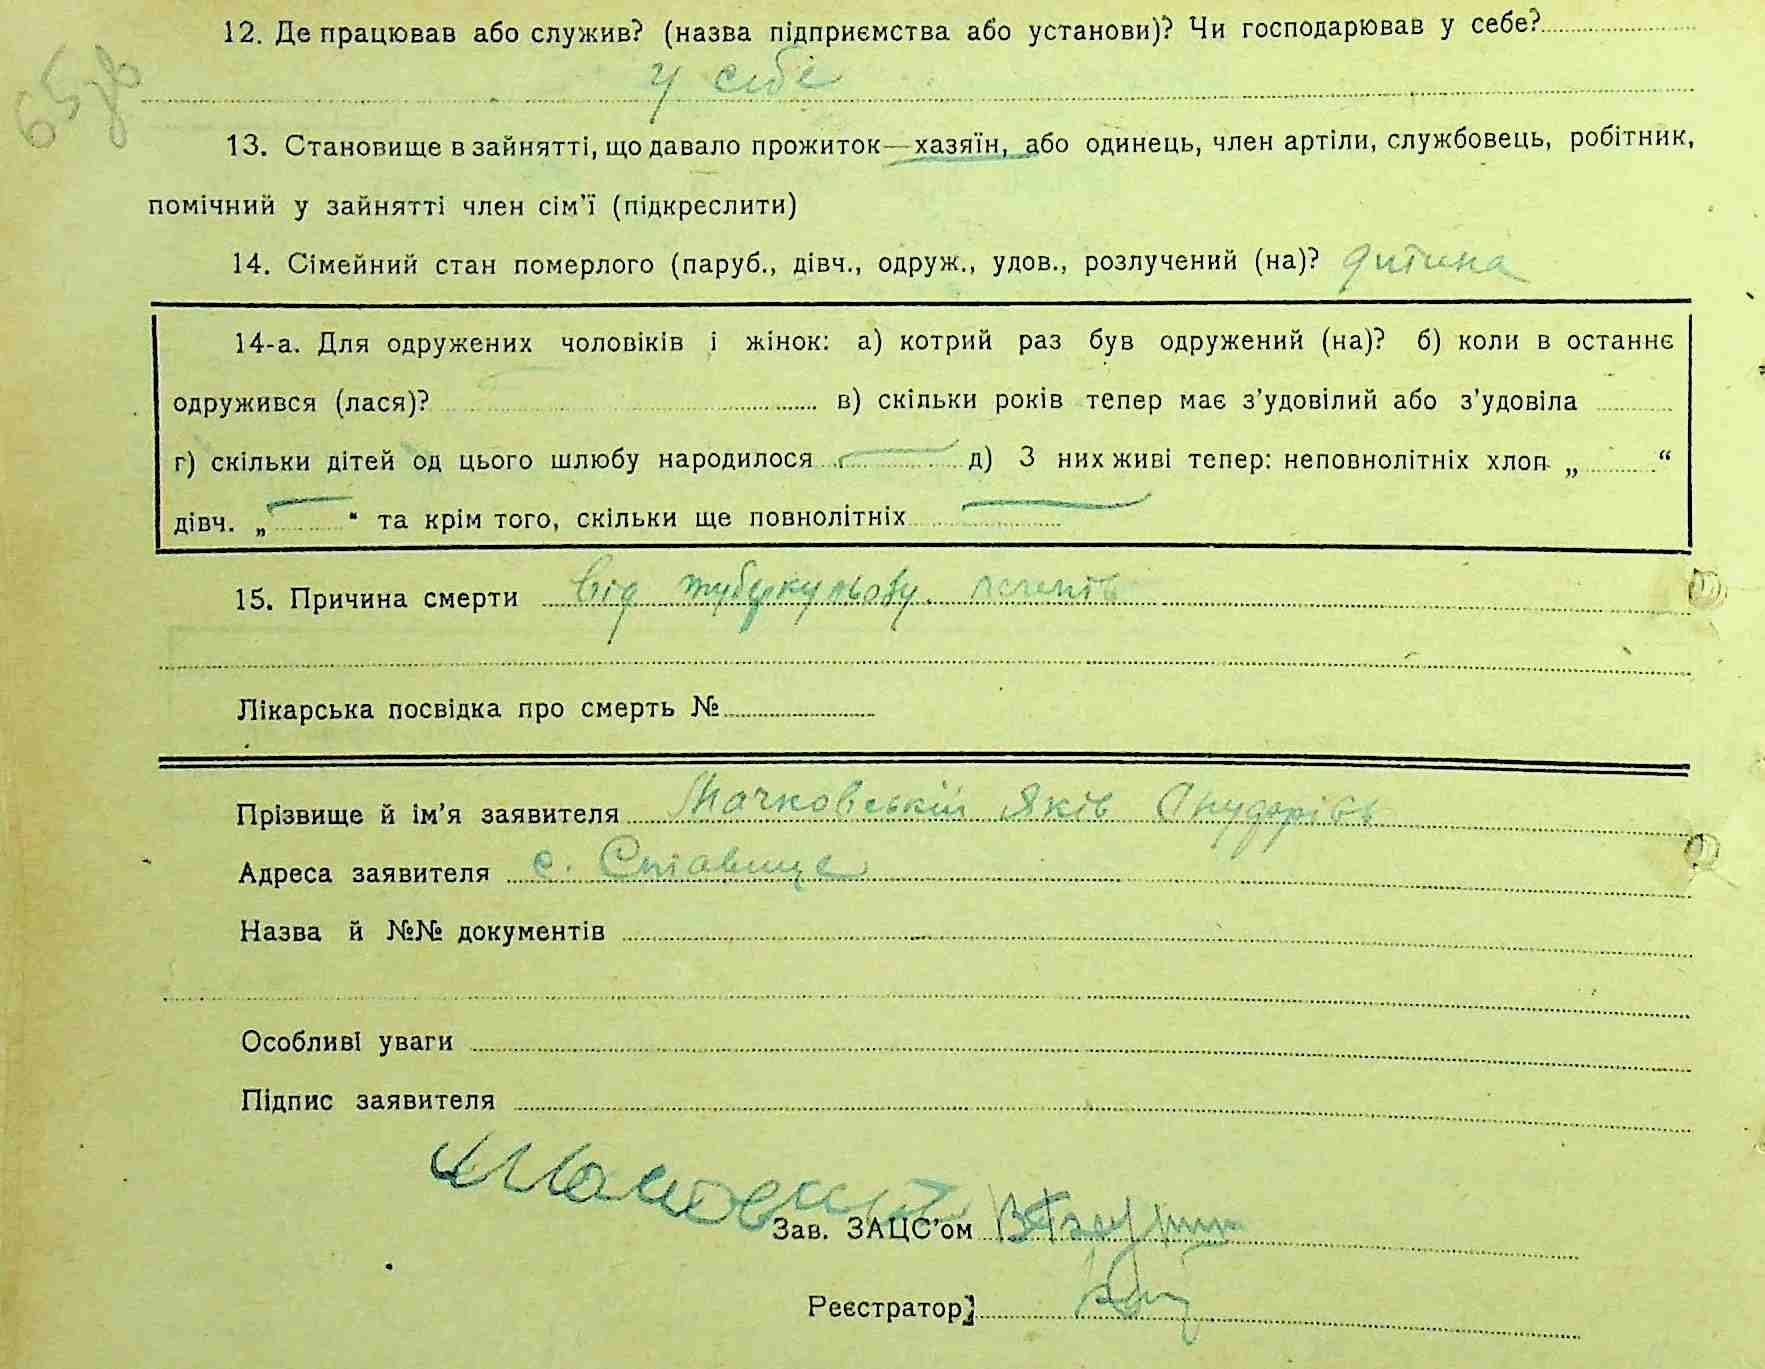 65зв
12. Де працював або служив? (назва підприємства або установи)? Чи господарював у себе?
у себе
13. Становище в зайнятті, що давало прожиток—хазяїн, або одинець, член артіли, службовець, робітник,
помічний у зайнятті член сім'ї (підкреслити)
14. Сімейний стан померлого (паруб., дівч., одруж., удов., розлучений (на)? дитина
14-а. Для одружених чоловіків і жінок: а) котрий раз був одружений (на)? б) коли в останнє
одружився (лася)? в) скільки років тепер має з'удовілий або з'удовіла
г) скільки дітей од цього шлюбу народилося д) З них живі тепер: неповнолітніх хлоп „ “
дівч. „ “ та крім того, скільки ще повнолітніх
15. Причина смерти від туберкульозу легенів
Лікарська посвідка про смерть №
Прізвище й ім'я заявителя Мачковській Яків
Адреса заявителя с. Ставище
Назва й №№ документів
Особливі уваги
Підпис заявителя
Зав. ЗАЦС'ом
Реєстратор